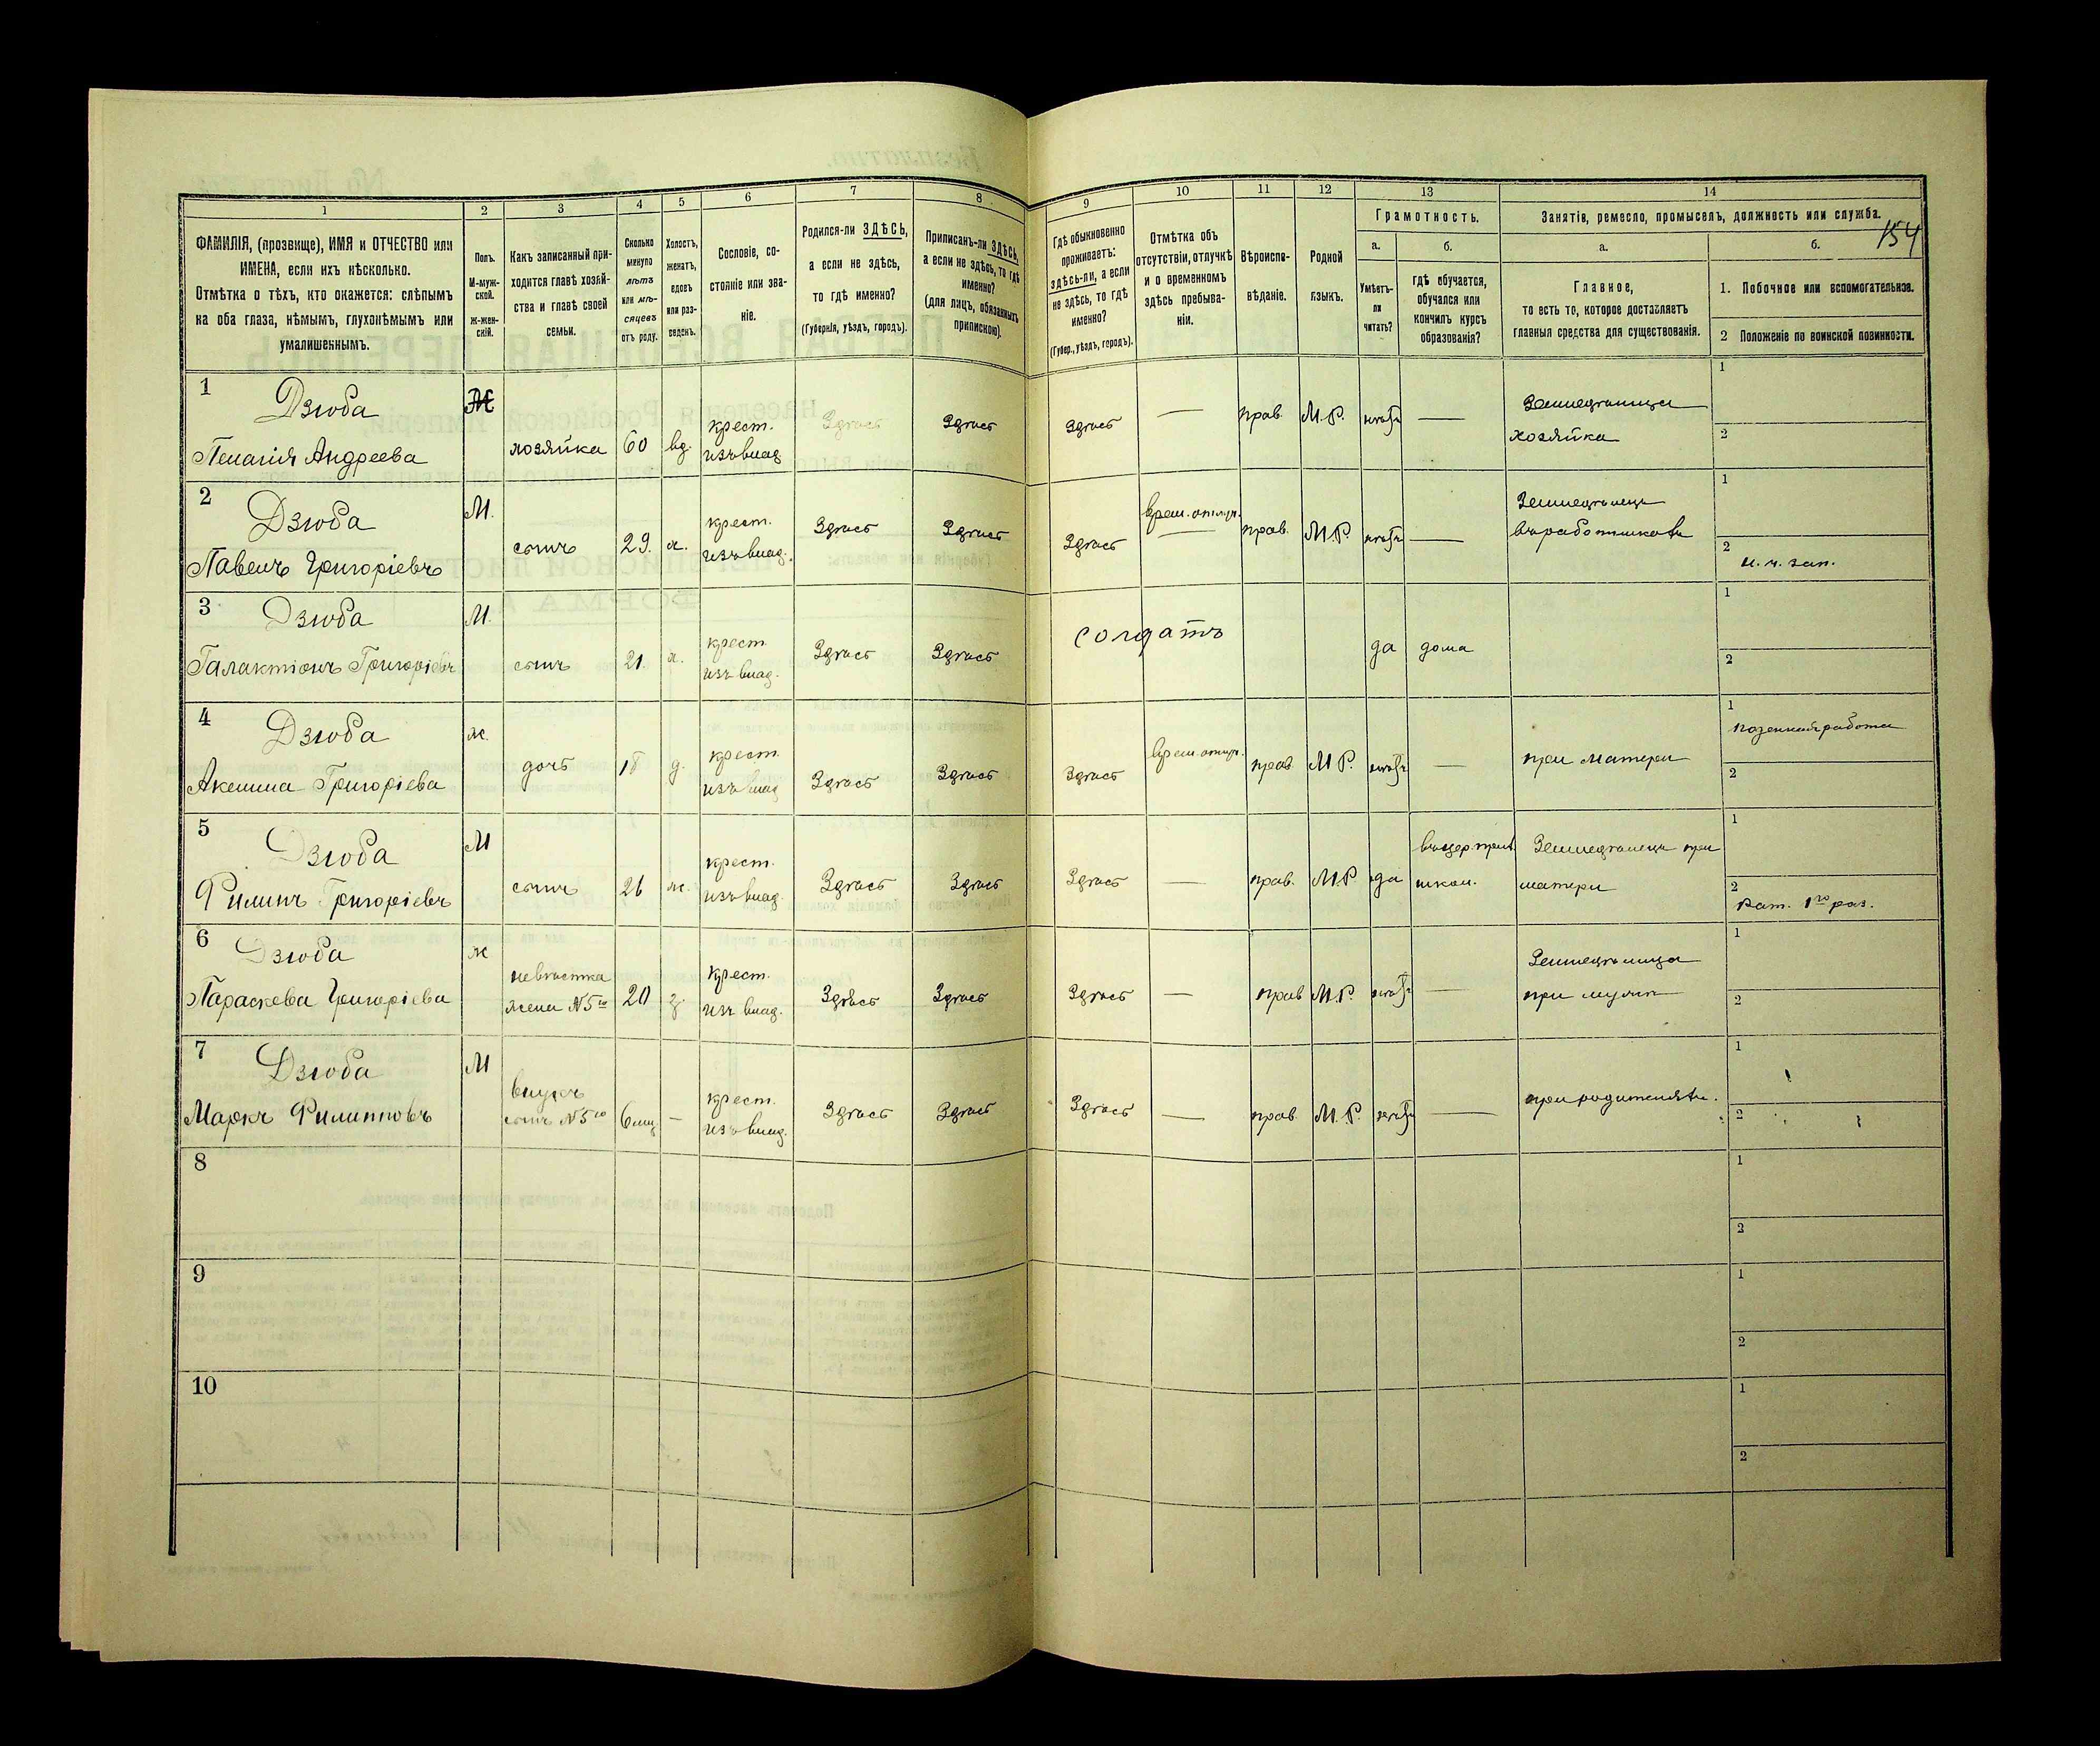 1 2 3 4 5 6 7 8 9 10 11 12 13 14
ФАМИЛІЯ, (прозвище), ИМЯ и ОТЧЕСТВО или
ИМЕНА, если ихъ нѣсколько.
Отмѣтка о тѣхъ, кто окажется: слѣпымъ
на оба глаза, нѣмымъ, глухонѣмымъ или
умалишеннымъ.
Полъ.
М-муж-
ской.
Ж-жен-
скій.
Какъ записанный при-
ходится главѣ хозяй-
ства и главѣ своей
семьи.
Сколько
минуло
лѣтъ
или мѣ-
сяцевъ
отъ роду.
Холостъ,
женатъ,
вдовъ
или раз-
веденъ.
Сословіе, со-
стояніе или зва-
ніе.
Родился-ли ЗДѢСЬ,
а если не здѣсь,
то гдѣ именно?
(Губернія, уѣздъ, городъ).
Приписанъ-ли ЗДѢСЬ,
а если не здѣсь, то гдѣ
именно?
(для лицъ, обязанныхъ
припискою).
Гдѣ обыкновенно
проживаетъ:
здѣсь-ли, а если
не здѣсь, то гдѣ
именно?
(Губер., уѣздъ, городъ).
Отмѣтка объ
отсутствіи, отлучкѣ
и о временномъ
здѣсь пребыва-
ніи.
Вѣроиспо-
вѣданіе.
Родной
языкъ.
Грамотность.
а.
Умѣетъ-
ли
читать?
б.
гдѣ обучается,
обучался или
кончилъ курсъ
образованія?
Занятіе, ремесло, промыселъ, должность или служба.
154
а.
Главное,
то есть то, которое доставляетъ
главныя средства для существованія.
б.
1. Побочное или вспомогательное.
2 Положеніе по воинской повинности.
1 Дзюба Ж
Пелагія Андреева хозяйка 60 вд. крест. изъ влад. Здѣсь Здѣсь Здѣсь — прав. М.Р. нѣтъ — Земледѣлица хозяйка
1
2
2 Дзюба М.
Павелъ Григоріевъ сынъ 29. х. крест. изъ влад. Здѣсь Здѣсь Здѣсь врем. отлуч. — прав. М.Р. нѣтъ — Земледѣлецъ въ работникахъ
1
2 н. ч. зап.
3 Дзюба М.
Галактіонъ Григоріевъ сынъ 21. х. крест. изъ влад. Здѣсь Здѣсь солдатъ да дома
1
2
4 Дзюба ж.
Акелина Григоріева дочь 18 д. крест. изъ влад. Здѣсь Здѣсь Здѣсь врем. отлуч. прав. М.Р. нѣтъ — при матери
1 поденная работа
2
5 Дзюба М
Филипъ Григоріевъ сынъ 26 ж. крест. изъ влад. Здѣсь Здѣсь Здѣсь — прав. М.Р. да въ цер. прих. школ. Земледѣлецъ при матери
1
2 Рат. 1го раз.
6 Дзюба ж
Параскева Григоріева невѣстка жена №5го 20 з. крест. изъ влад. Здѣсь Здѣсь Здѣсь — прав М.Р. нѣтъ — Земледѣлица при мужѣ
1
2
7 Дзюба М
Маркъ Филипповъ внукъ сынъ №5го 6 мѣц — крест. изъ влад. Здѣсь Здѣсь Здѣсь — прав. М.Р. нѣтъ — при родителяхъ.
1
2
8
1
2
9
1
2
10
1
2